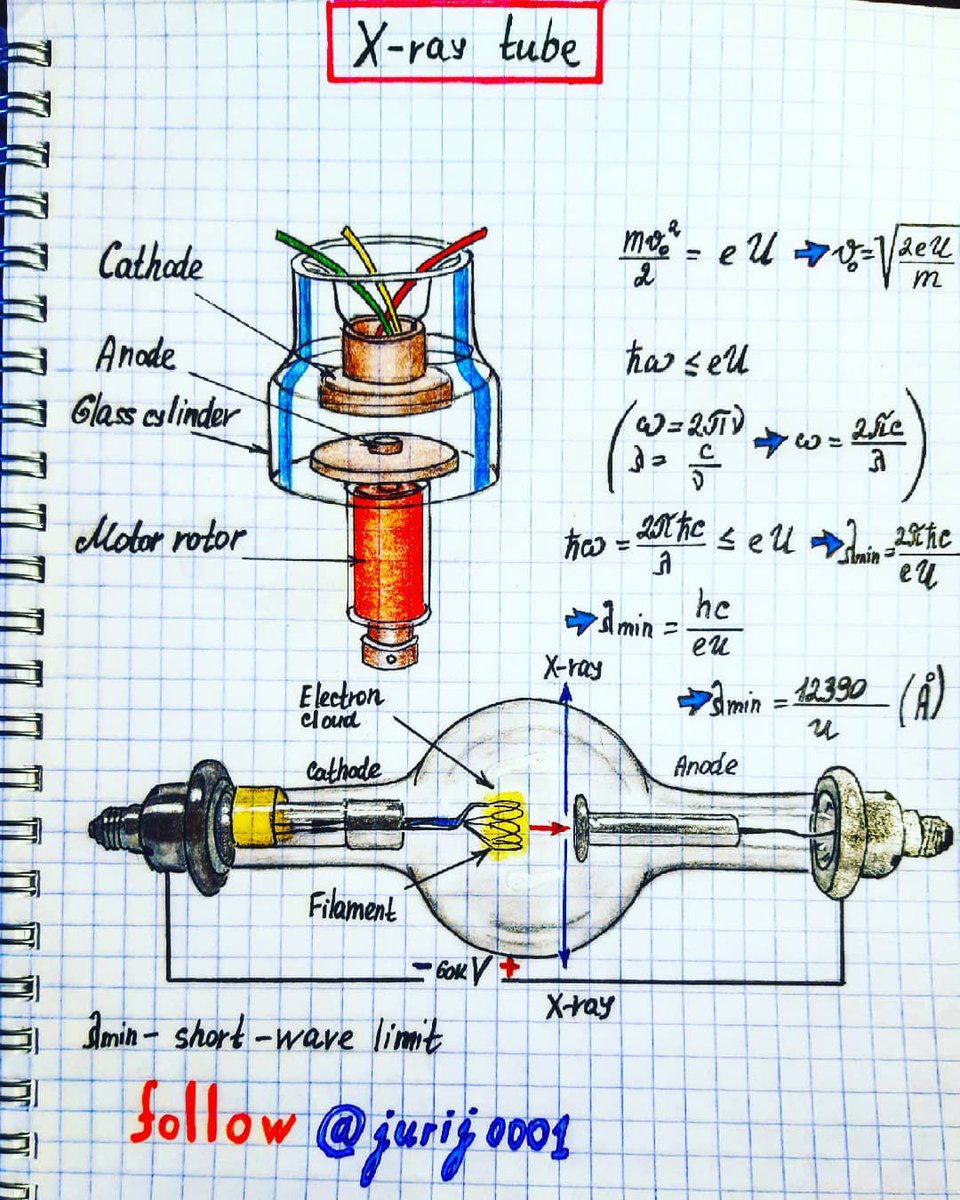 X-ray tube
Cathode
Anode
Glass cylinder
Motor rotor
mv₀²/2 = eU ➡ v₀=√(2eU/m)
ħω ≤ eU
(ω = 2πν
λ = c/ν ➡ ω = 2πc/λ)
ħω = 2πħc/λ ≤ eU ➡ λmin = 2πħc/eU
➡ λmin = hc/eU
➡ λmin = 12390/U (Å)
X-ray
Electron
cloud
Cathode
Anode
Filament
- 60kV +
X-ray
λmin - short-wave limit
follow @jurij0001